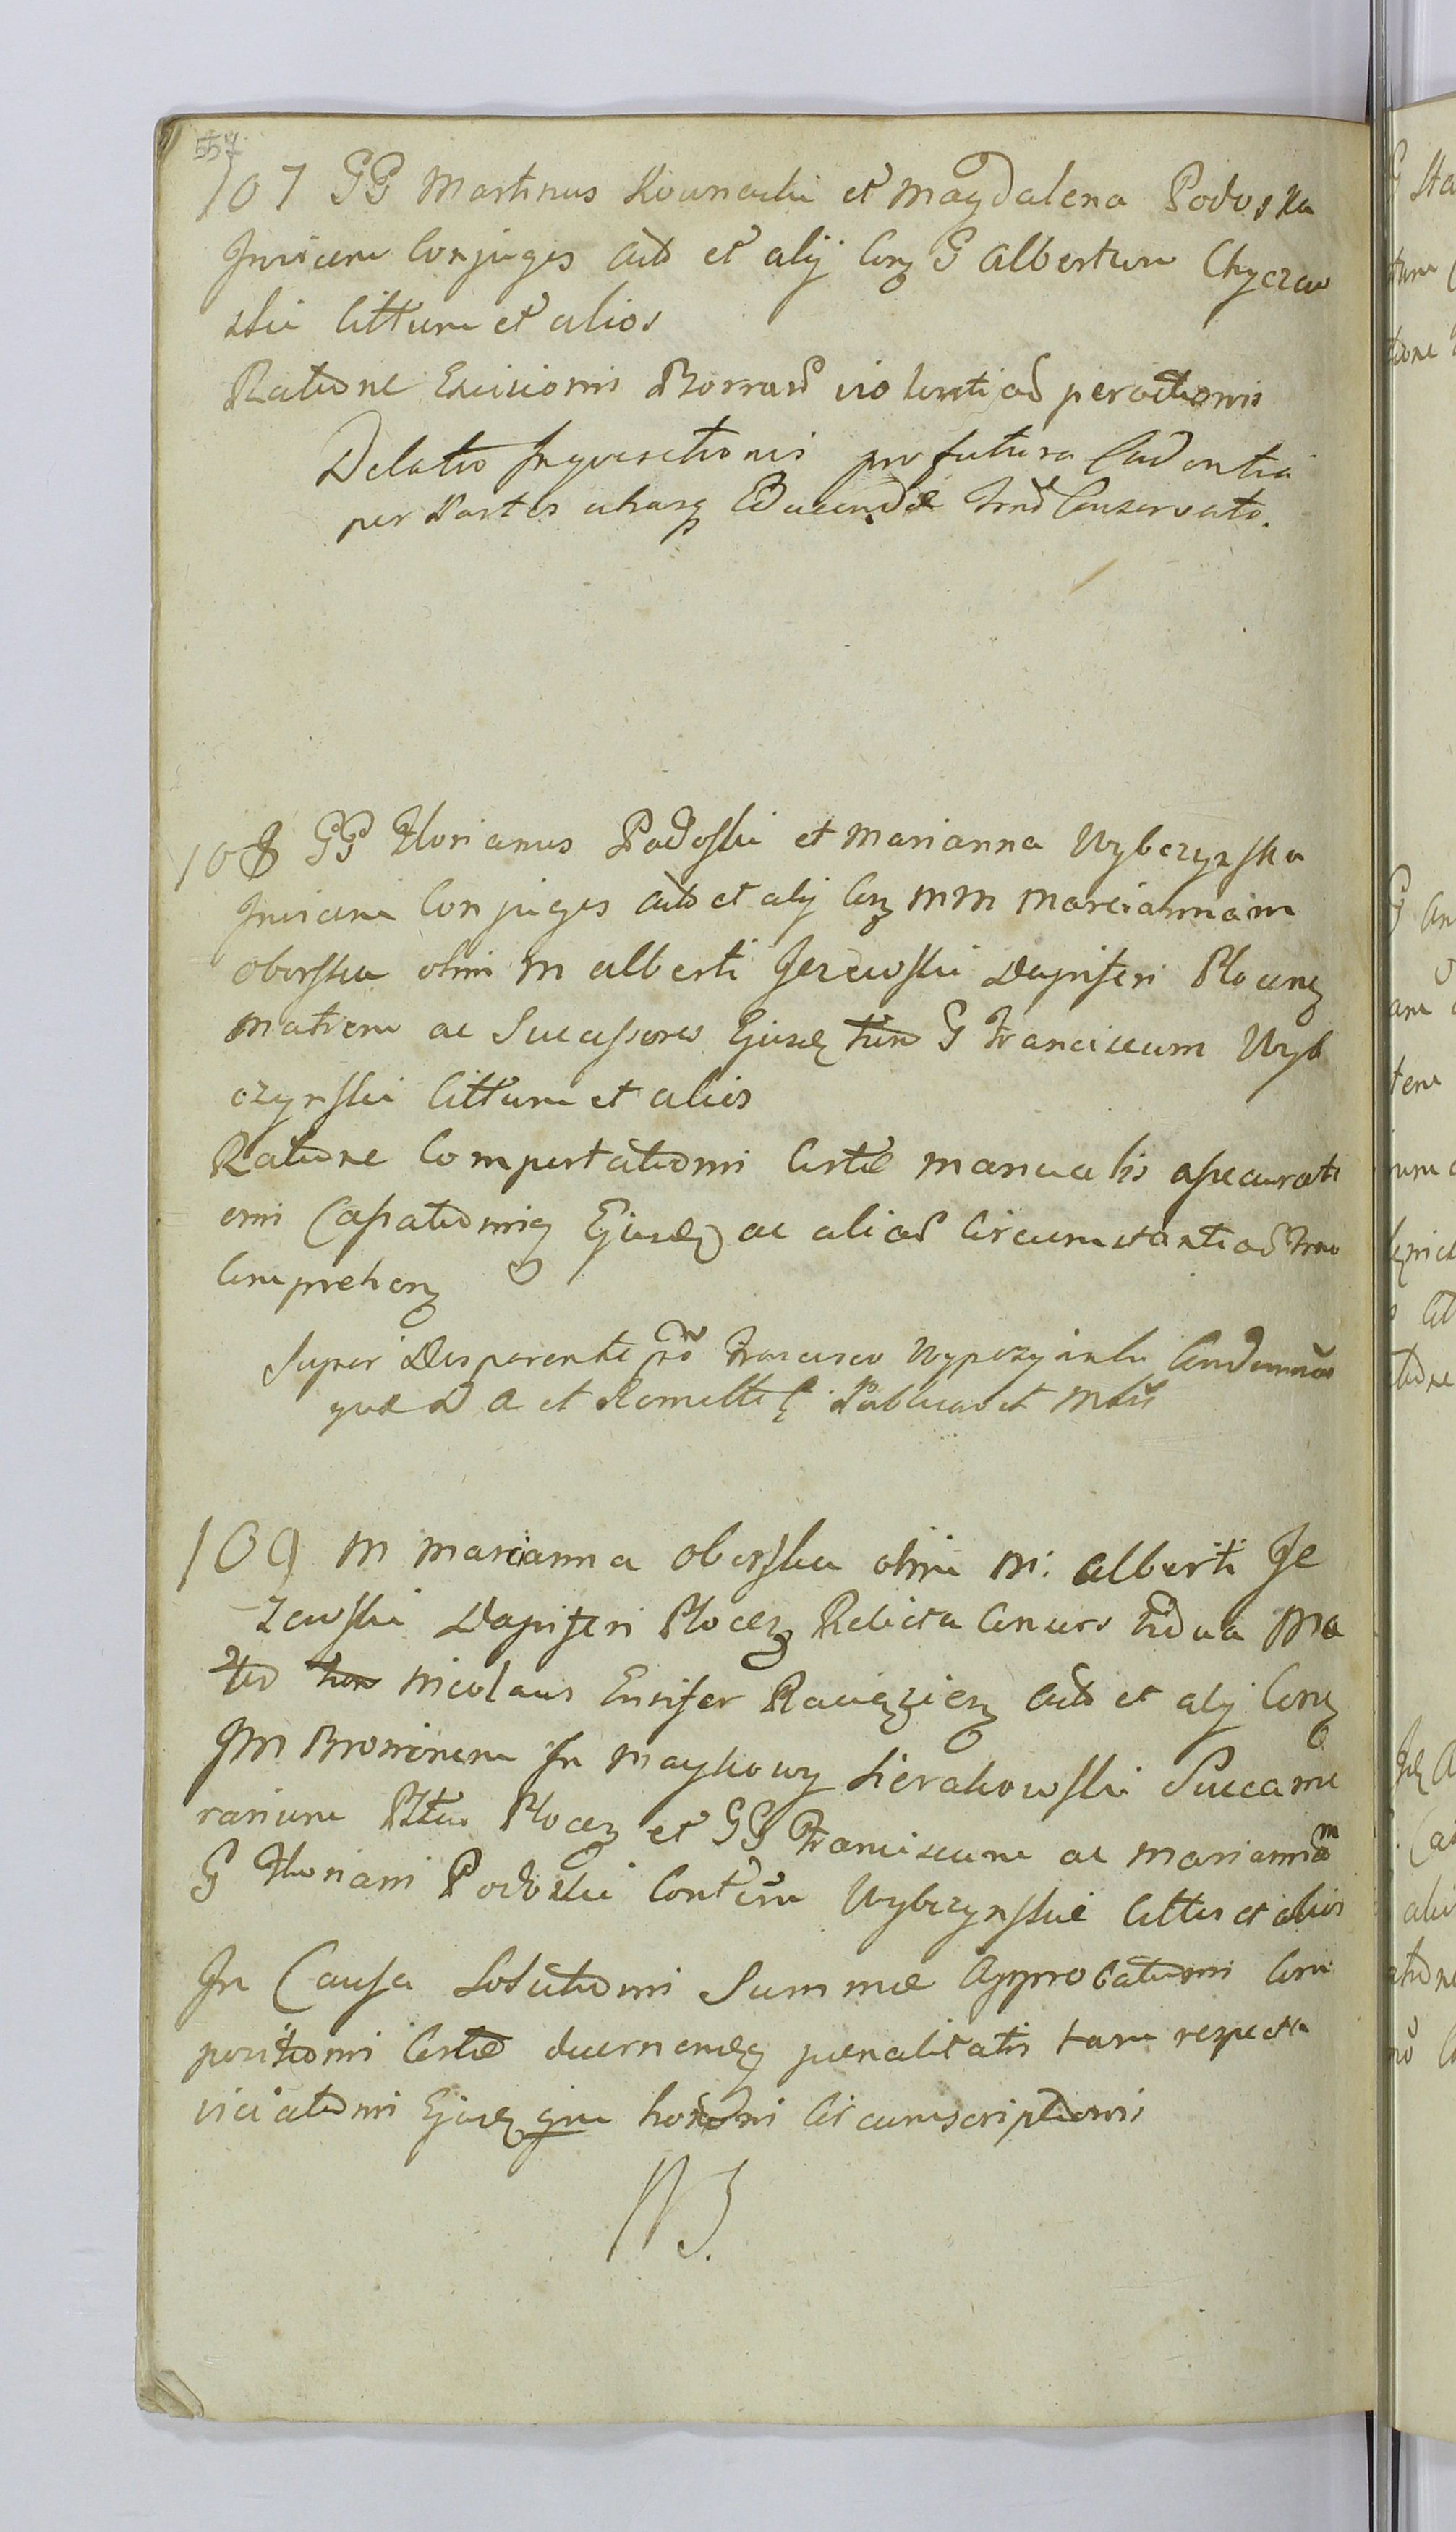 557
107 GG Martinus Kownacki et Magdalena Podoska
Invicem Conjuges Acto et alij Conz G Albertum Chyczew
ski Cittum et alios
Ratione Excisionis Borrar violenti ad peractionis
Delatio Inquisitionis pro futura Cadentia
per Partes utrasq Educendae Conservato.
108 GG Florianus Podoski et Marianna Wybczynska
Invicem Conjuges Acto et alij Conz MM Mariannam
Oborska olim M Alberti Jezewski Dapiferi Plocenz
Matrem ac Successores Ejusdz G Franciscum Wyb
czynski Cittum et alios
Ratione Comportationis Certae manualis assecurati
onis Cassationisq Ejusdz ac aliar Circumstantiar
Comprehenz
Super Disparente Francisco Wypczynski
quae D A et Remitte Publicavit
109 M Marianna Oborska olim M: Alberti Je
zewski Dapiferi Plocenz Relicta Consors Vidua Ma
ter Nicolaus Ensifer Raciązienz Acto et alij Conz
JM Bronimem In Maykowy Sierakowski Succame
rarium Pttus Plocenz et GG Franciscum ac Mariannam
G Floriani Podoski Conthem Wybczynskie Cittos et alios
In Causa Solutionis Summae Approbationis Com
positionis Certae decernendz paenalitatis tam respectu
viciationis Ejusdz qm honoris Circumscriptionis
NB.